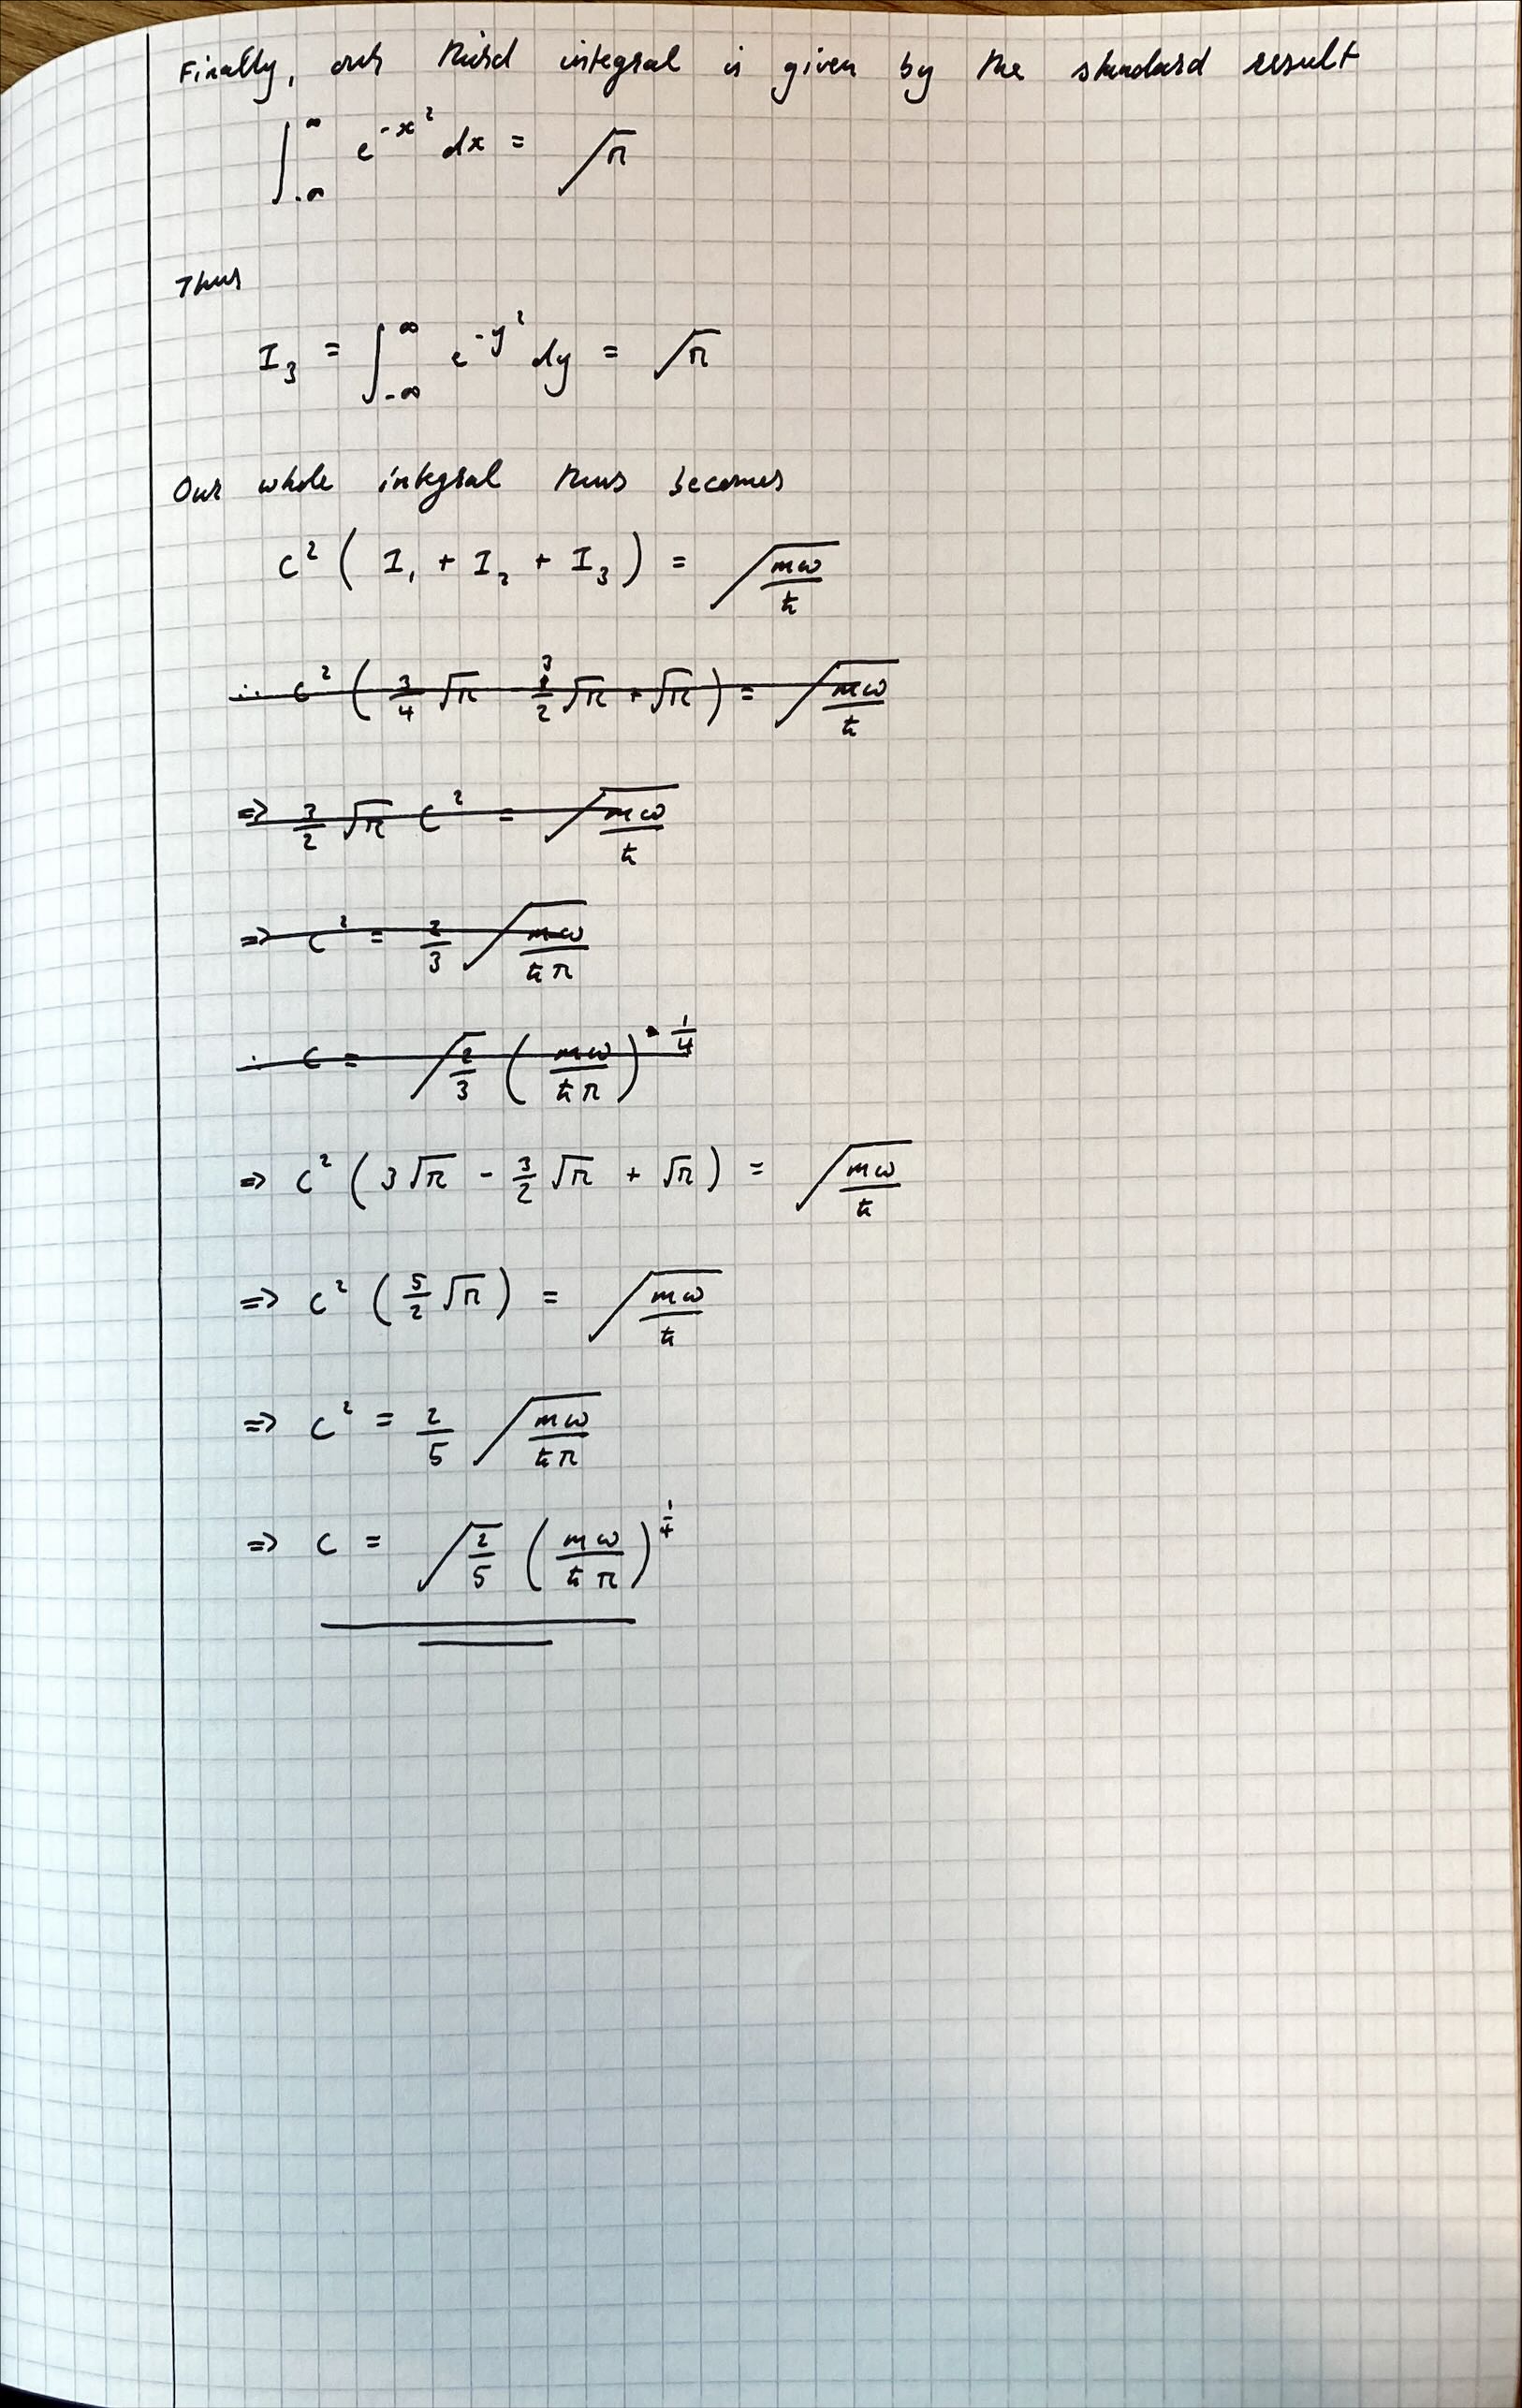 Finally, our third integral is given by the standard result
∫_{-∞}^{∞} e^{-x²} dx = √π
Thus
I₃ = ∫_{-∞}^{∞} e^{-y²} dy = √π
Our whole integral thus becomes
C² ( I₁ + I₂ + I₃ ) = √(mω/ħ)
∴ C² ( 3/4 √π - 3/2 √π + √π ) = √(mω/ħ)
=> 3/2 √π C² = √(mω/ħ)
=> C² = 2/3 √(mω/ħπ)
∴ C = √(2/3) (mω/ħπ)^{1/4}
=> C² ( 3√π - 3/2 √π + √π ) = √(mω/ħ)
=> C² ( 5/2 √π ) = √(mω/ħ)
=> C² = 2/5 √(mω/ħπ)
=> C = √(2/5) (mω/ħπ)^{1/4}